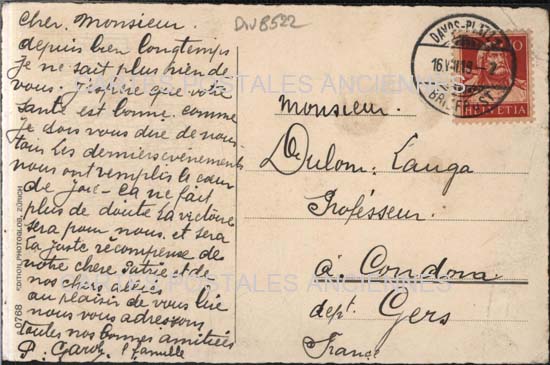 DIV8522
Cher. Monsieur.
depuis bien longtemps
Je ne sait plus rien de
vous. J'espère que votre
santé est bonne. comme
Je dois vous dire de nous
tous les derniers événements
nous ont remplis le cœur
de joie - ça ne fait
plus de doute la victoire
sera pour nous. et sera
la juste récompense de
notre chère Patrie et de
nos chers alliés.
au plaisir de vous lire
nous vous adressons
toutes nos bonnes amitiés
P. famille
0768 EDITION PHOTOGLOB, ZÜRICH
DAVOS-PLATZ
16.V
HELVETIA
Monsieur.
Dulom. Langa
Profésseur.
à. Condom
dept. Gers
France
CARTES POSTALES ANCIENNES
CARTES POSTALES ANCIENNES